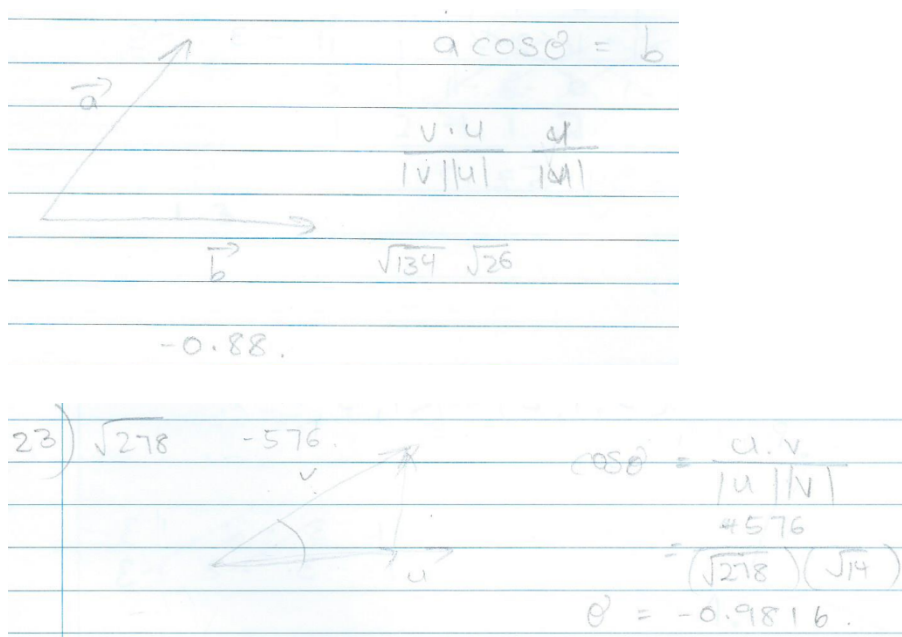 a cosθ = b
→a
v · u / |v||u| u / |u|
→b √134 √26
-0.88.
23) √278 -576.
v
cosθ = u . v / |u||v|
→u
= +576 / (√278)(√14)
θ = -0.9816.